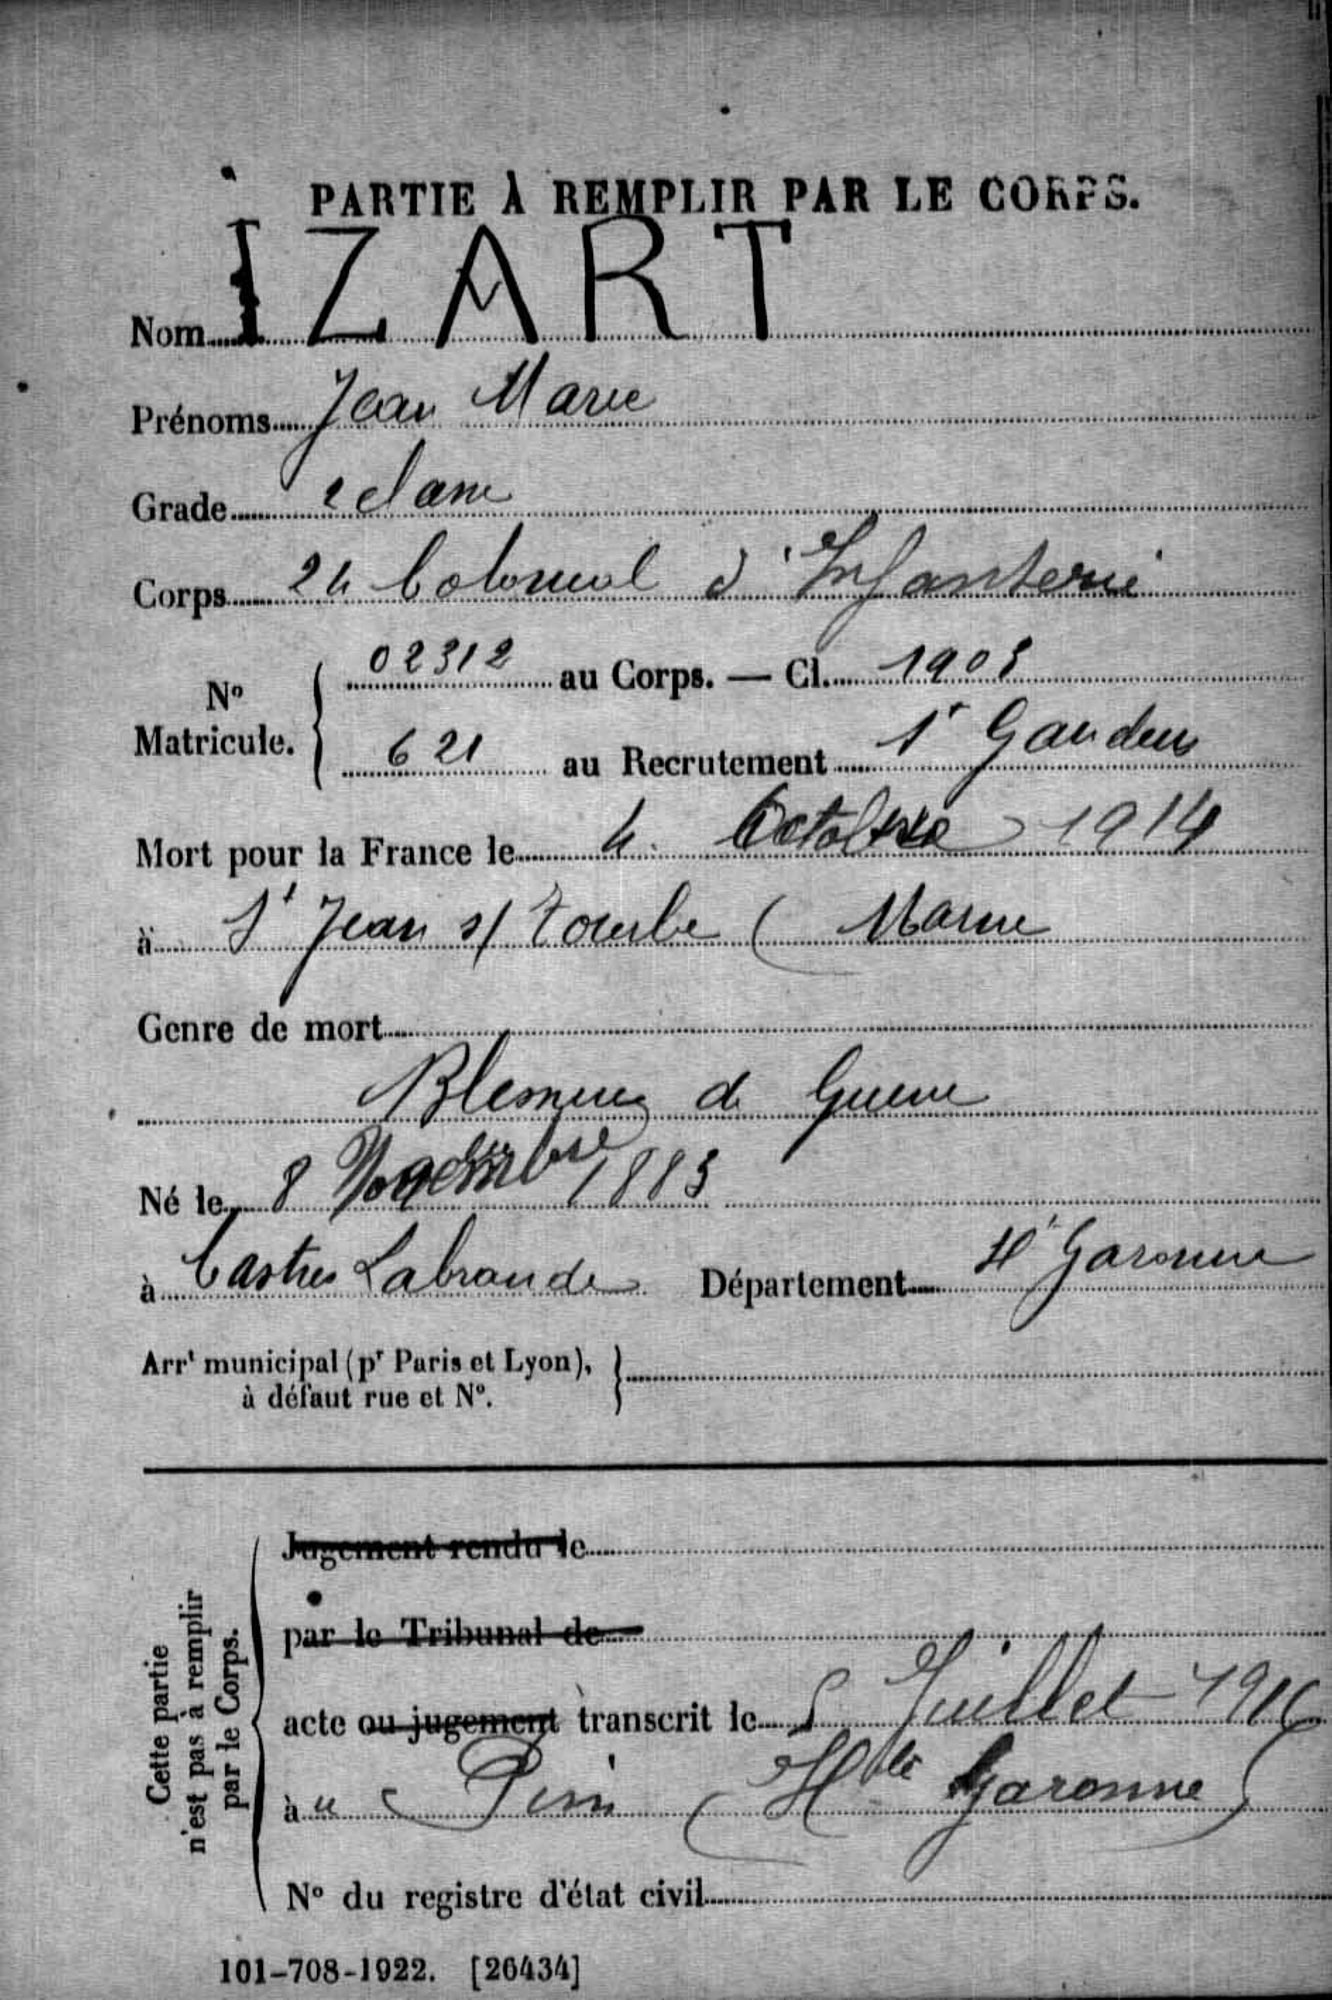 PARTIE À REMPLIR PAR LE CORPS.
Nom IZART
Prénoms Jean Marie
Grade 2 classe
Corps 24 Colonial d'Infanterie
02312 au Corps. — Cl. 1903
N° Matricule.
621 au Recrutement St Gaudens
Mort pour la France le 4 Octobre 1914
à St Jean s/ Tourbe ( Marne
Genre de mort
Blessures de Guerre
Né le 8 Novembre 1883
à Castres Labrande Département Hte Garonne
Arrt municipal (pr Paris et Lyon),
à défaut rue et N°.
Cette partie
n'est pas à remplir
par le Corps.
Jugement rendu le
par le Tribunal de
acte ou jugement transcrit le 5 Juillet 1916
à u Pin (Hte Garonne)
N° du registre d'état civil
101-708-1922. [26434]